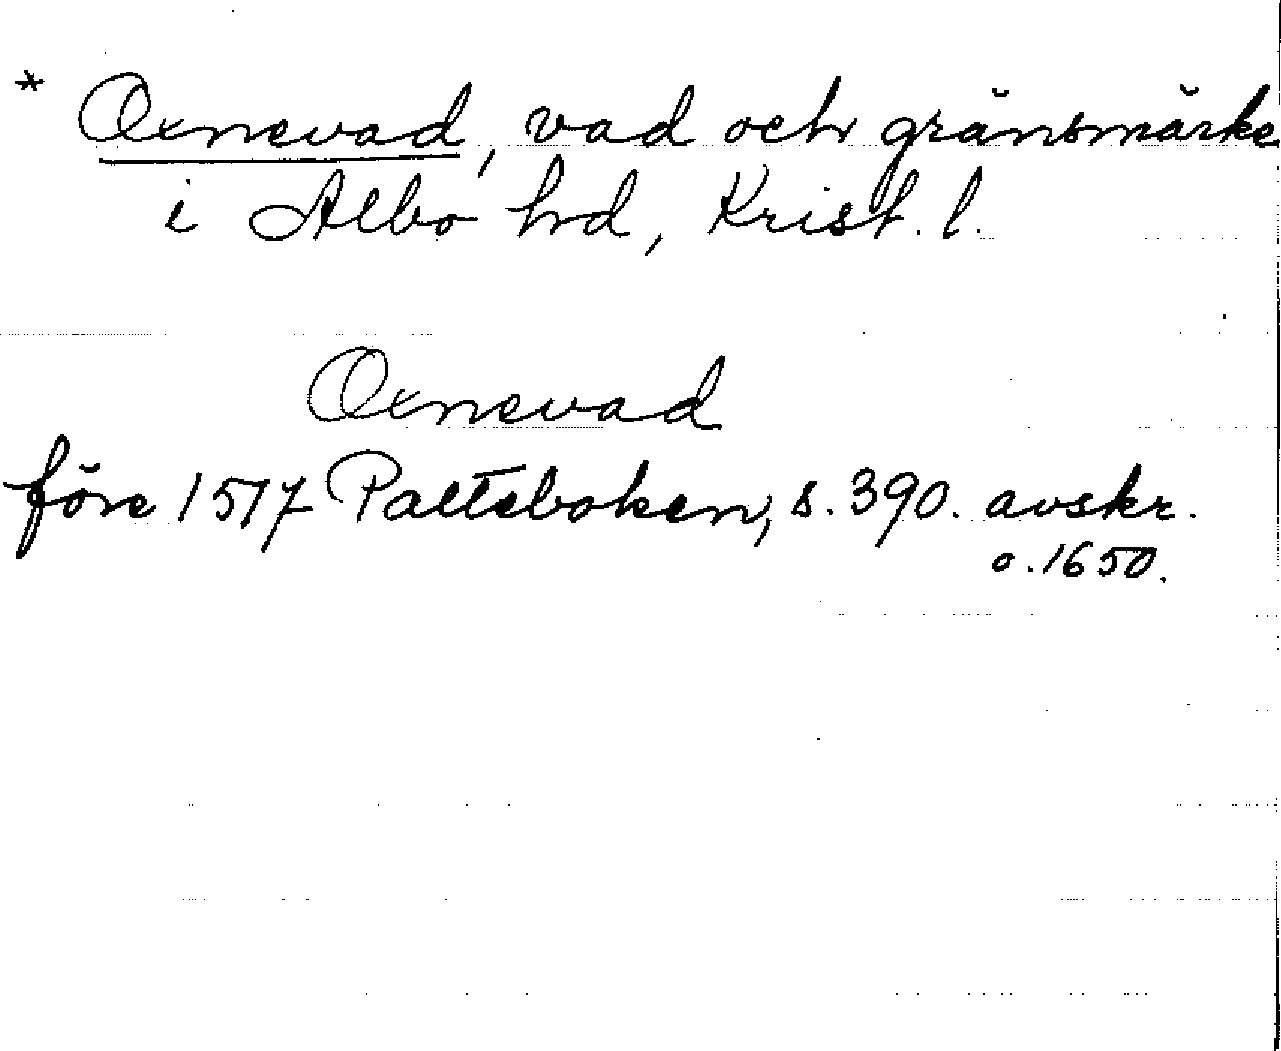 * Oxnevad, vad och gränsmärke
i Albo hd, Krist. l.
Oxnevad
före 1517 Palteboken, s. 390. avskr.
o. 1650.